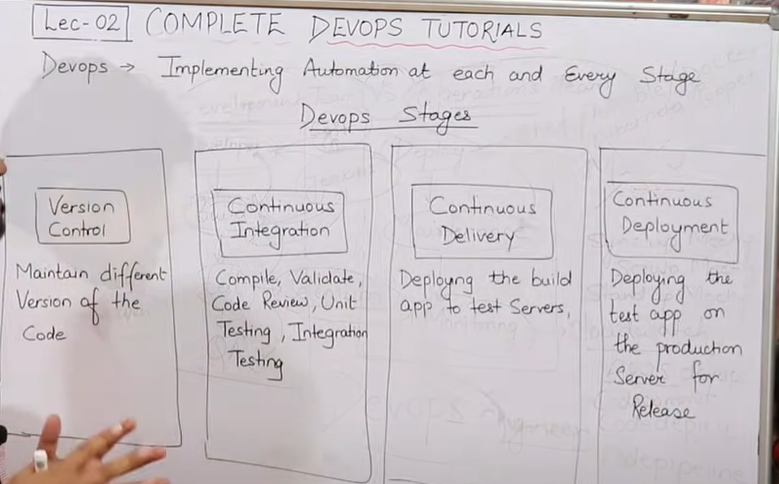 Lec-02 COMPLETE DEVOPS TUTORIALS
Devops → Implementing Automation at each and Every Stage
Devops Stages
Version
Control
Maintain different
Version of the
Code
Continuous
Integration
Compile, Validate,
Code Review, Unit
Testing, Integration
Testing
Continuous
Delivery
Deployng the build
app to test Servers,
Continuous
Deployment
Deploying the
test app on
the production
Server for
Release